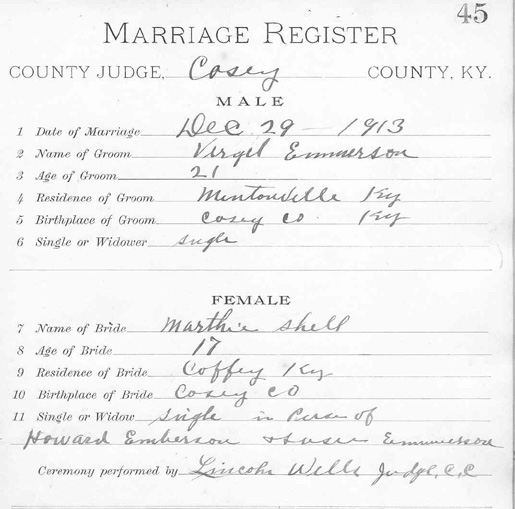 45
MARRIAGE REGISTER
COUNTY JUDGE, Casey COUNTY, KY.
MALE
1 Date of Marriage Dec 29 — 1913
2 Name of Groom Virgil Emmerson
3 Age of Groom 21
4 Residence of Groom Mintonville Ky
5 Birthplace of Groom Casey Co Ky
6 Single or Widower single
FEMALE
7 Name of Bride Marthie Shell
8 Age of Bride 17
9 Residence of Bride Coffey Ky
10 Birthplace of Bride Casey Co
11 Single or Widow single in Pres of
Howard Emberson Emmerson
Ceremony performed by Lincoln Wells Judge, C, C